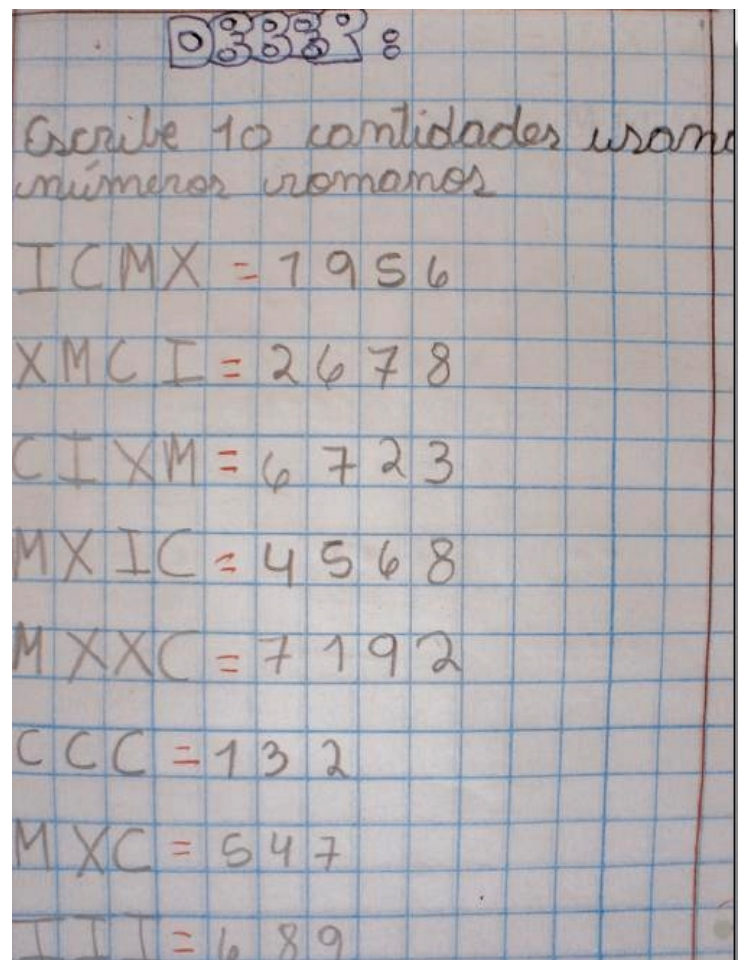 Escribe 10 cantidades usand
números romanos
ICMX = 1956
XMCI = 2678
CIXM = 6723
MXIC = 4568
MXXC = 7192
CCC = 132
MXC = 547
III = 689